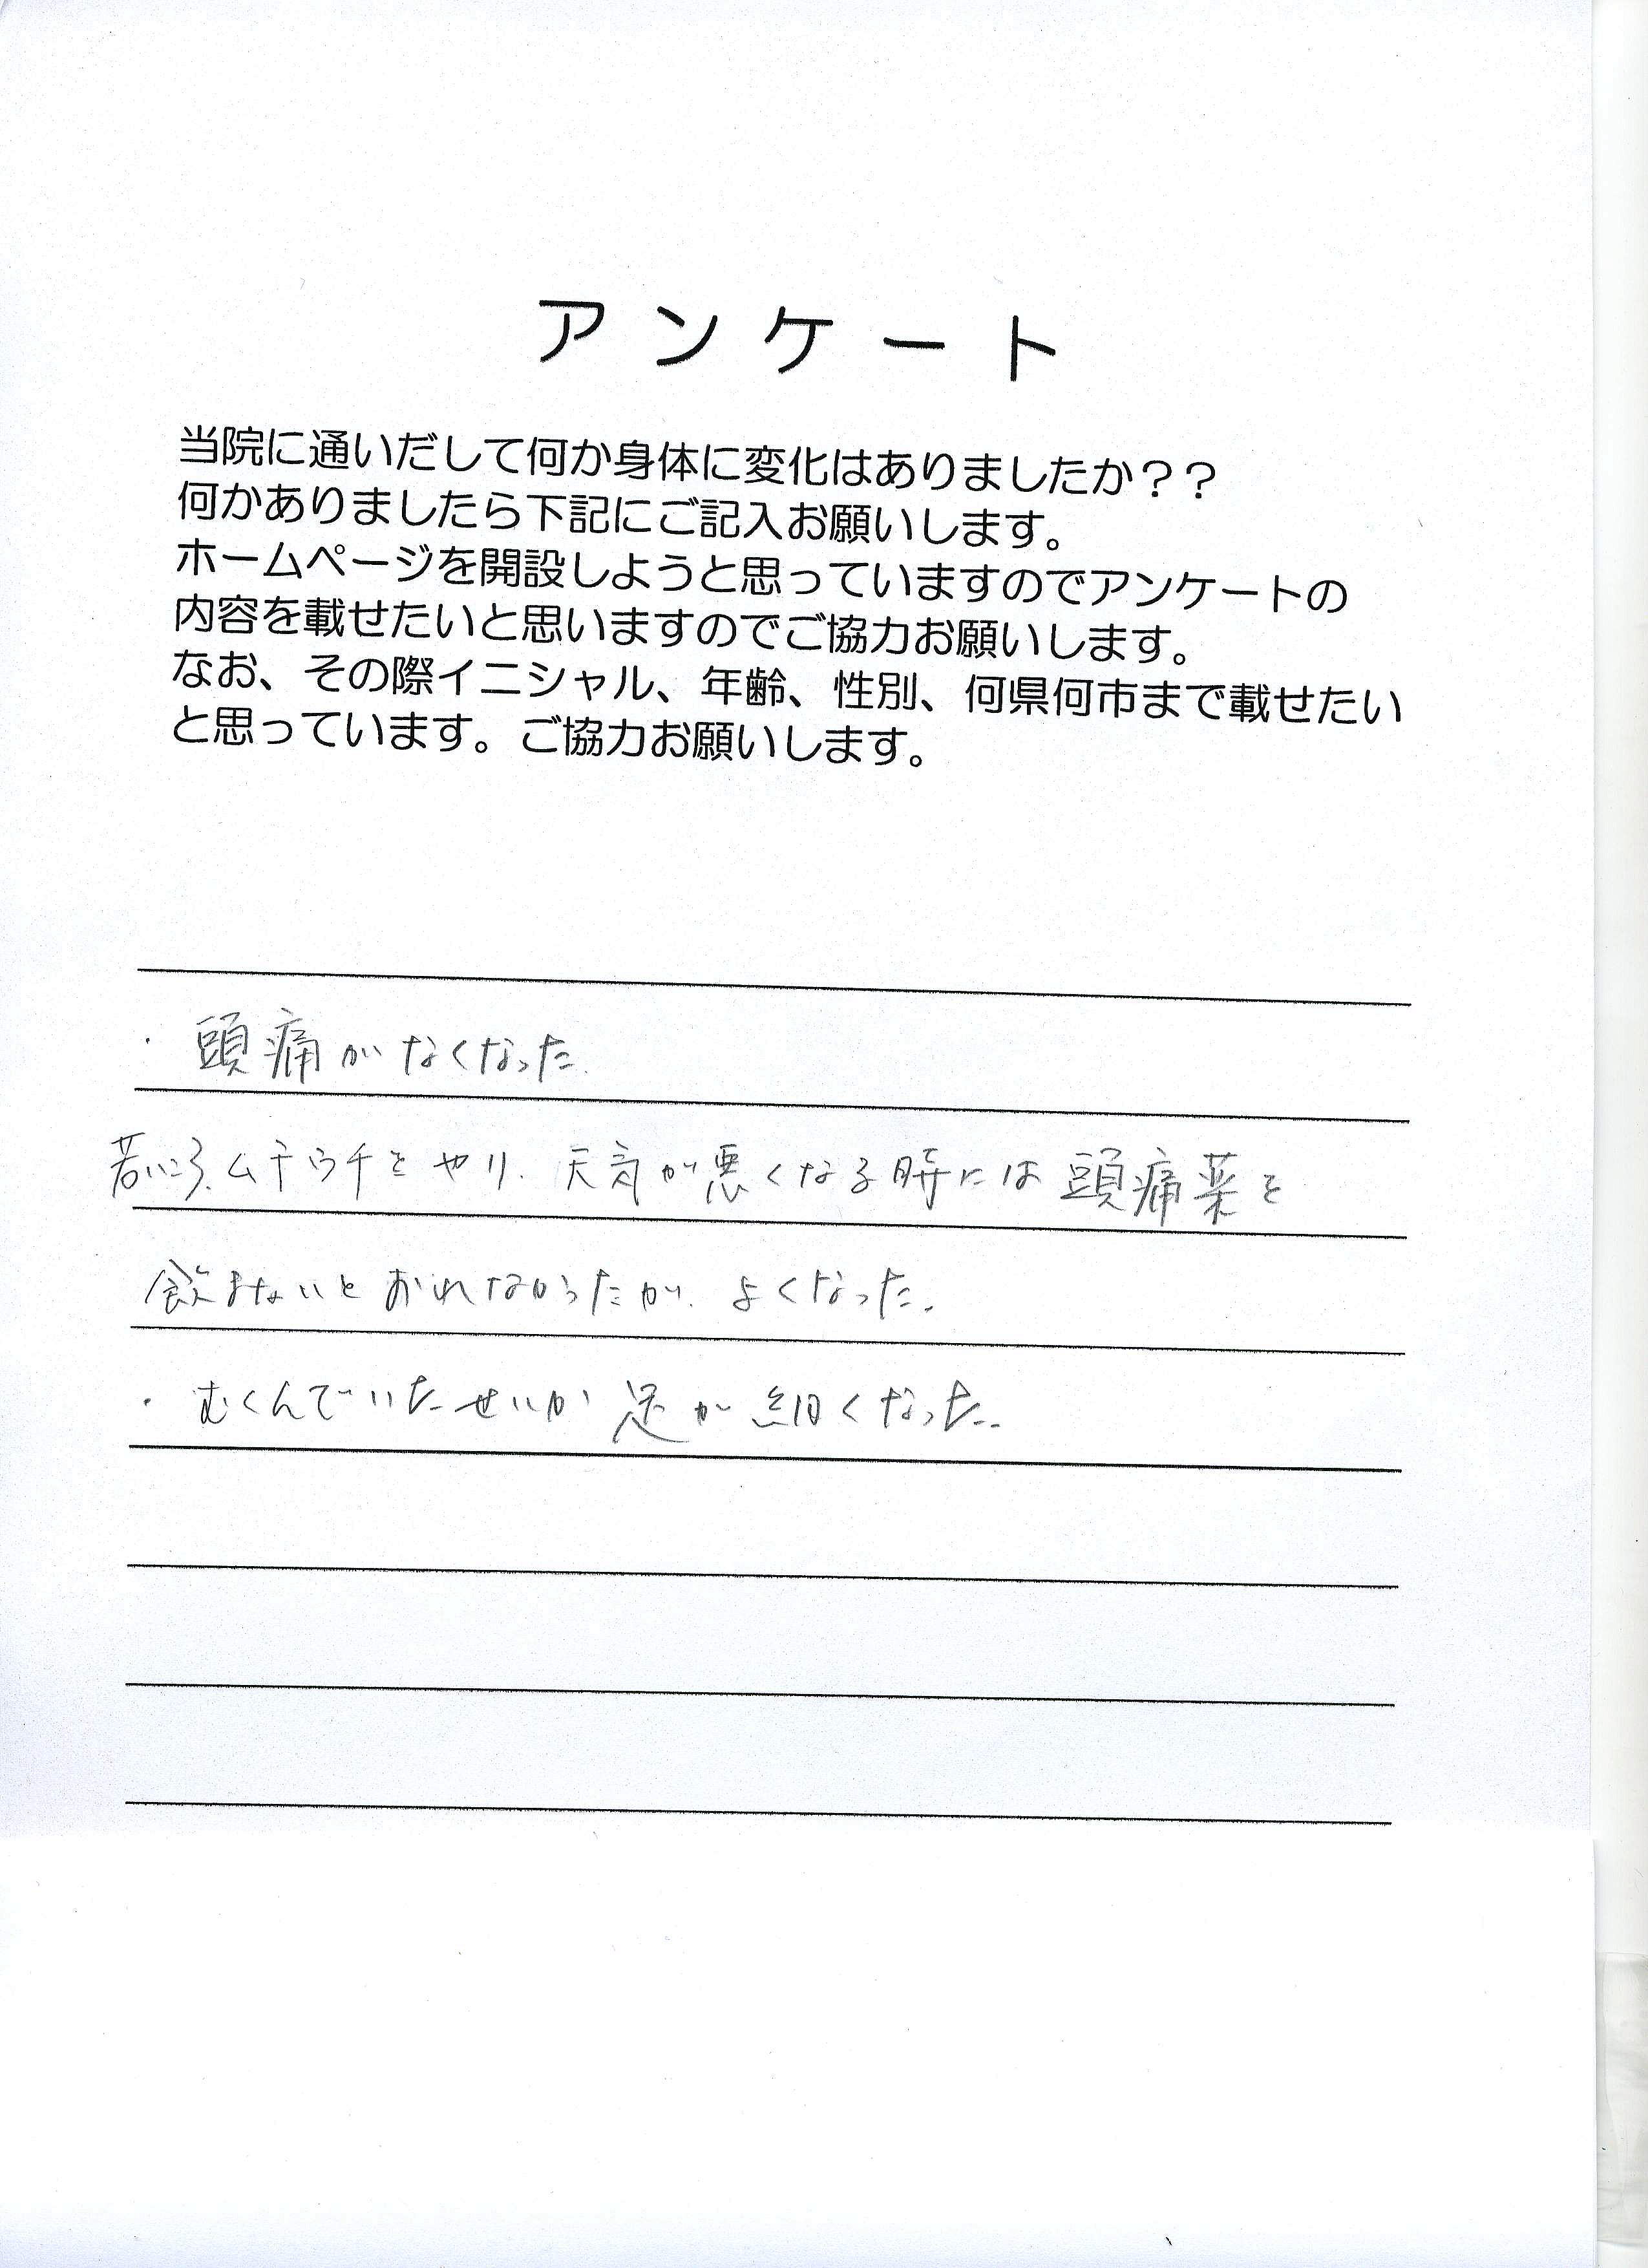 アンケート
当院に通いだして何か身体に変化はありましたか？？
何かありましたら下記にご記入お願いします。
ホームページを開設しようと思っていますのでアンケートの
内容を載せたいと思いますのでご協力お願いします。
なお、その際イニシャル、年齢、性別、何県何市まで載せたい
と思っています。ご協力お願いします。
・頭痛がなくなった.
若いころ、ムチウチをやり、天気が悪くなる時には頭痛薬を
飲まないとおれなかったが、よくなった。
・むくんでいたせいか足が細くなった。